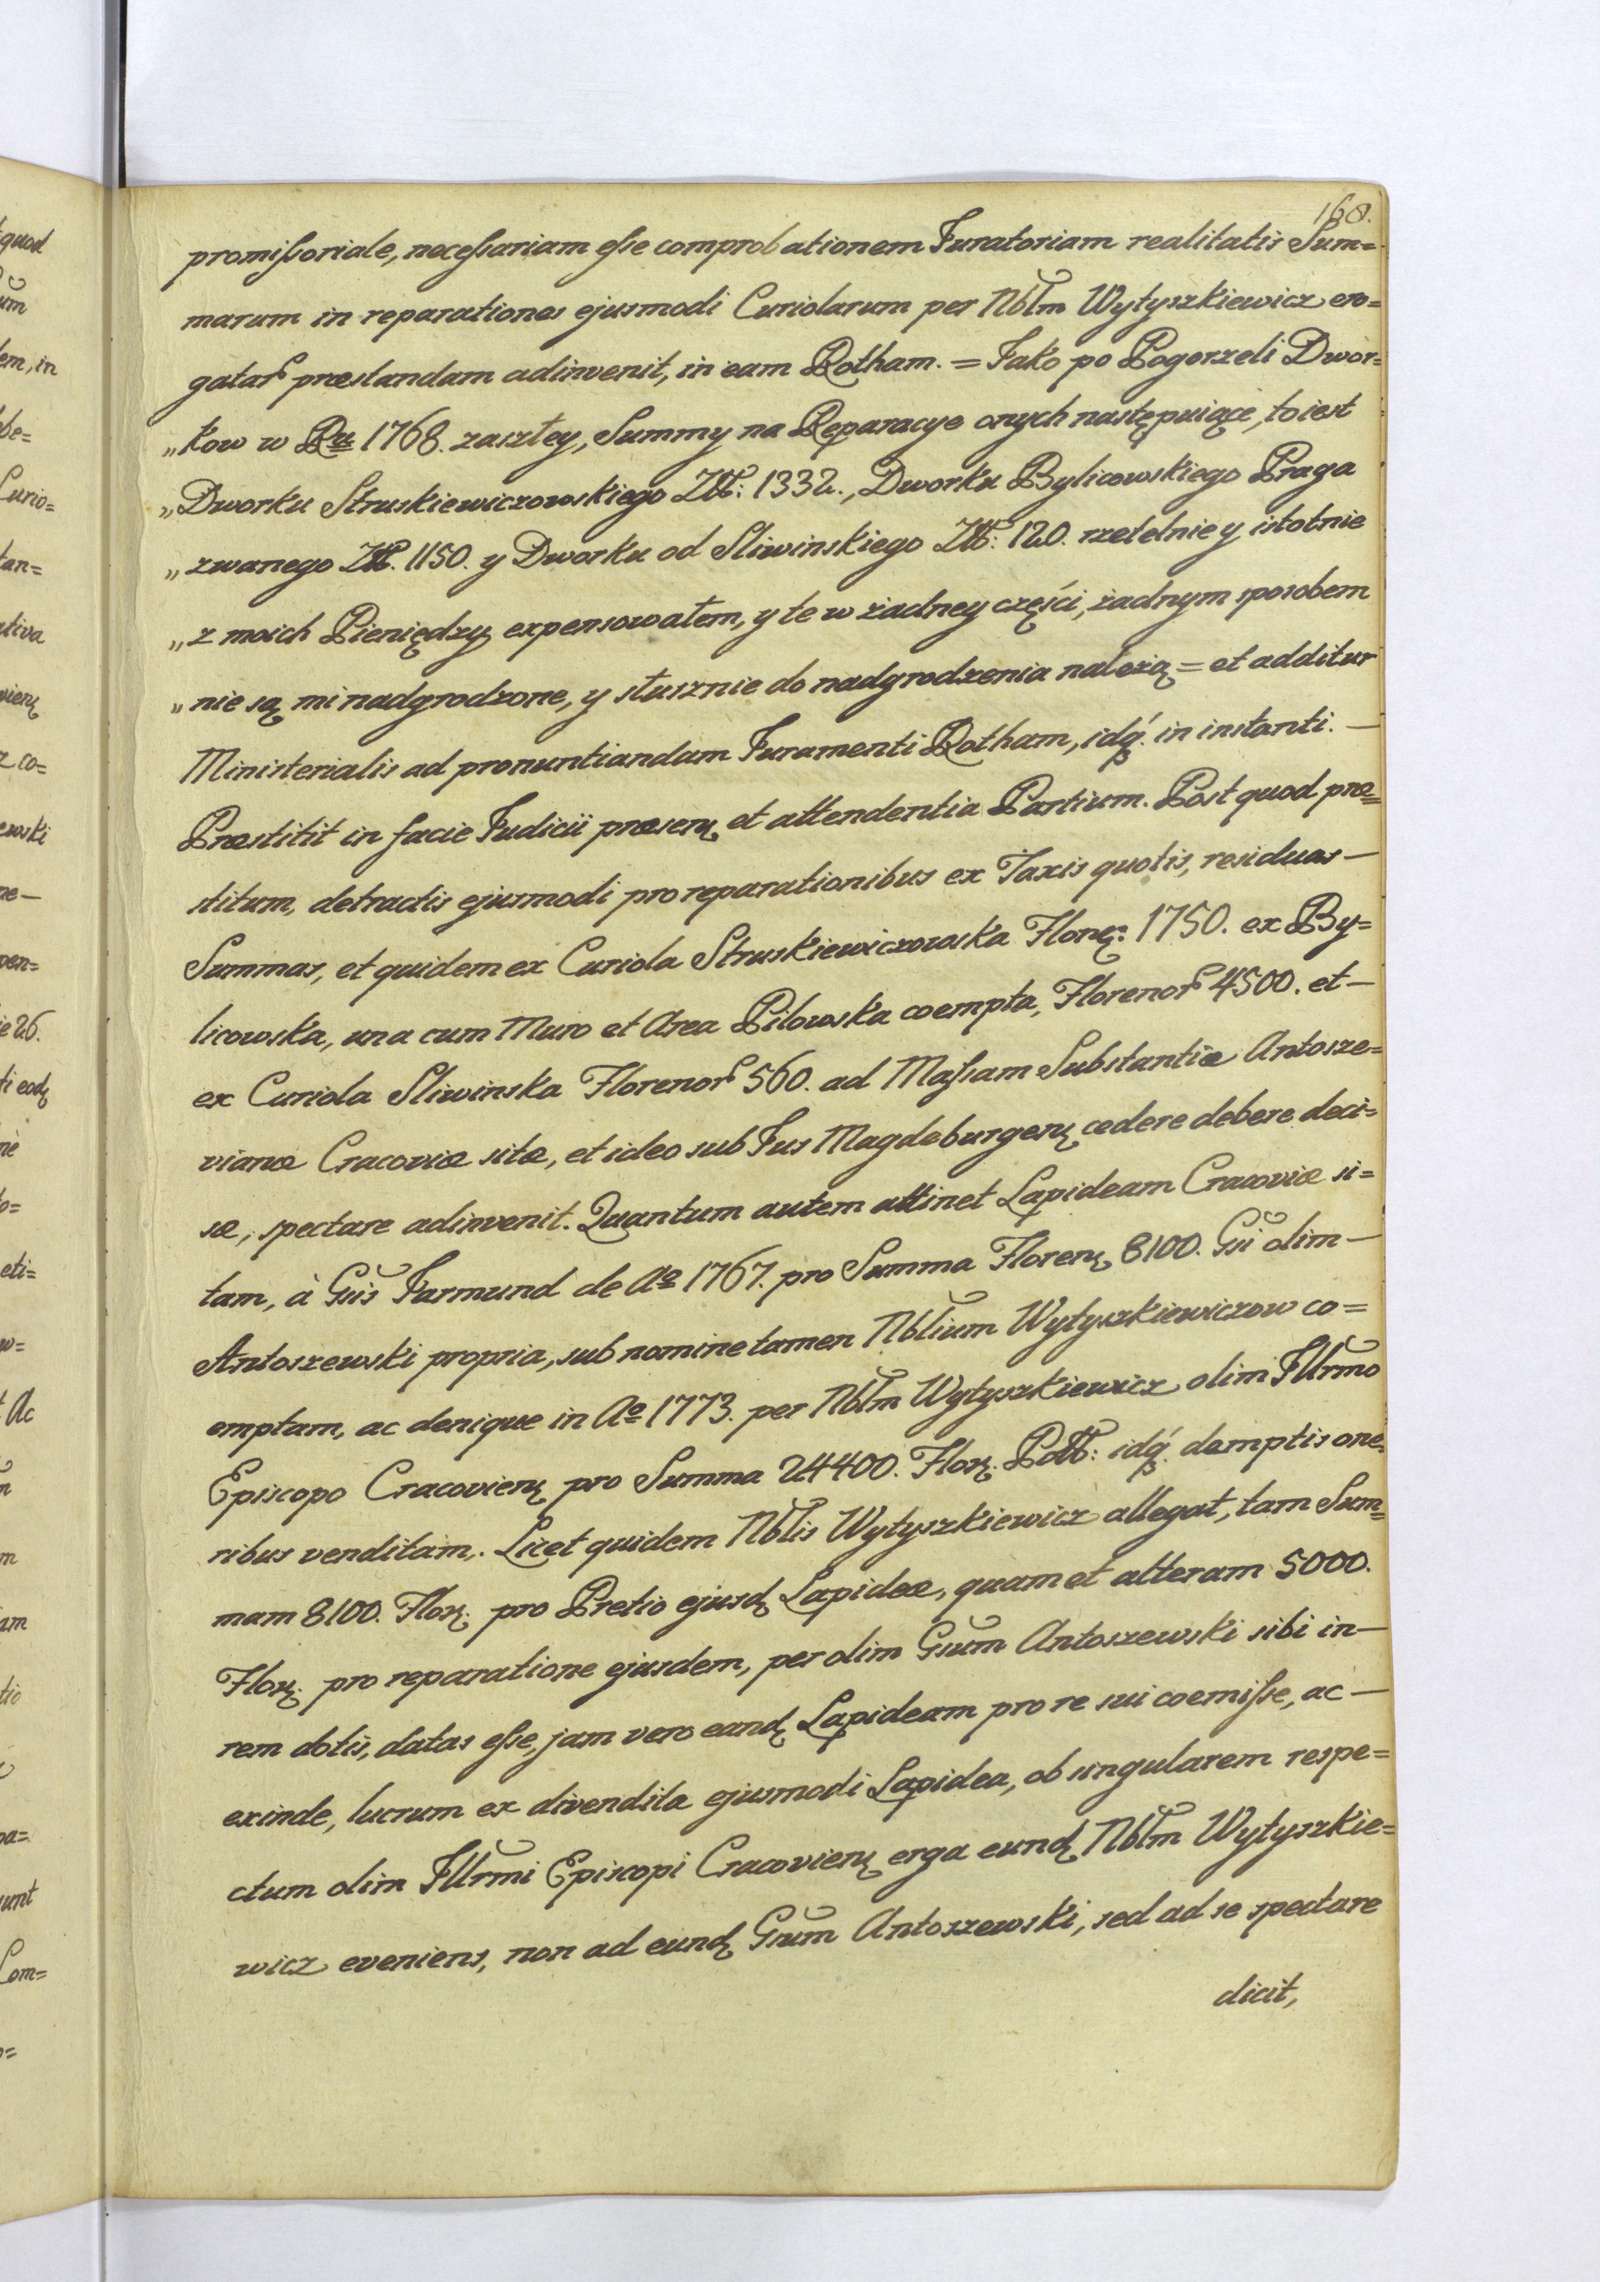 168.
promissoriale, necessariam esse comprobationem Juratoriam realitatis Sum=
marum in reparationes ejusmodi Curiolarum per Nblm Wytyszkiewicz ero=
gatar præstandam adinvenit, in eam Rotham. = Jako po Pogorzeli Dwor=
„kow w Ru 1768. zaszłey, Summy na Reparacye onych następuiące, to iest
„Dworku Struskiewiczowskiego Złł: 1332., Dworku Bylicowskiego Praga
„zwanego Złł. 1150. y Dworku od Sliwinskiego Złł: 120. rzetelnie y istotnie
„z moich Pieniędzy expensowałem, y te w żadney części, żadnym sposobem
„nie są mi nadgrodzone, y słusznie do nadgrodzenia należą = et additur
Ministerialis ad pronuntiandam Juramenti Rotham, idq́. in instanti. —
Præstitit in facie Judicii præsenꝫ et attendentia Partium. Post quod præ=
stitum, detractis ejusmodi pro reparationibus ex Taxis quotis, residuas —
Summas, et quidem ex Curiola Struskiewiczowska Florenꝫ: 1750. ex By=
licowska, una cum Muro et Area Pilowska coempta, Florenor 4500. et —
ex Curiola Sliwinska Florenor 560. ad Massam Substantiæ Antosze=
vianæ Cracoviæ sitæ, et ideo sub Jus Magdeburgenꝫ cedere debere deci=
sæ, spectare adinvenit. Quantum autem attinet Lapideam Cracoviæ si=
tam, à Gŭis Farmund de Aº 1767. pro Summa Florenꝫ 8100. Gŭi olim —
Antoszewski propria, sub nomine tamen Nblium Wytyszkiewiczow co=
emptam, ac denique in Aº 1773. per Nblm Wytyszkiewicz olim Illrmo
Episcopo Cracovienꝫ pro Summa 24400. Florꝫ. Poll: idq́. demptis one=
ribus venditam,. Licet quidem Nblis Wytyszkiewicz allegat, tam Sum=
mam 8100. Florꝫ. pro Pretio ejusdꝫ Lapideæ, quam et alteram 5000.
Florꝫ. pro reparatione ejusdem, per olim Gŭum Antoszewski sibi in —
rem dotis, datas esse, jam vero eandꝫ Lapideam pro re sui coemisse, ac —
exinde, lucrum ex divendita ejusmodi Lapidea, ob singularem respe=
ctum olim Illrmi Episcopi Cracovienꝫ erga eundꝫ Nblm Wytyszkie=
wicz eveniens, non ad eundꝫ Gŭum Antoszewski, sed ad se spectare
dicit,